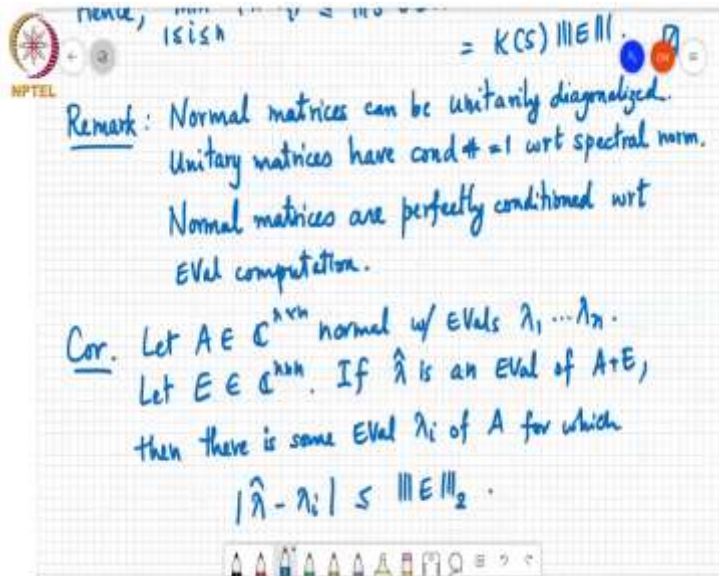 Hence,
1≤i≤n
= K(S) |||E|||.
NPTEL
Remark: Normal matrices can be unitarily diagonalized.
Unitary matrices have cond # = 1 wrt spectral norm.
Normal matrices are perfectly conditioned wrt
EVal computation.
Cor. Let A ∈ ℂⁿˣⁿ normal w/ EVals λ₁ ... λₙ.
Let E ∈ ℂⁿˣⁿ. If λ̂ is an EVal of A+E,
then there is some EVal λᵢ of A for which
|λ̂ - λᵢ| ≤ |||E|||₂.